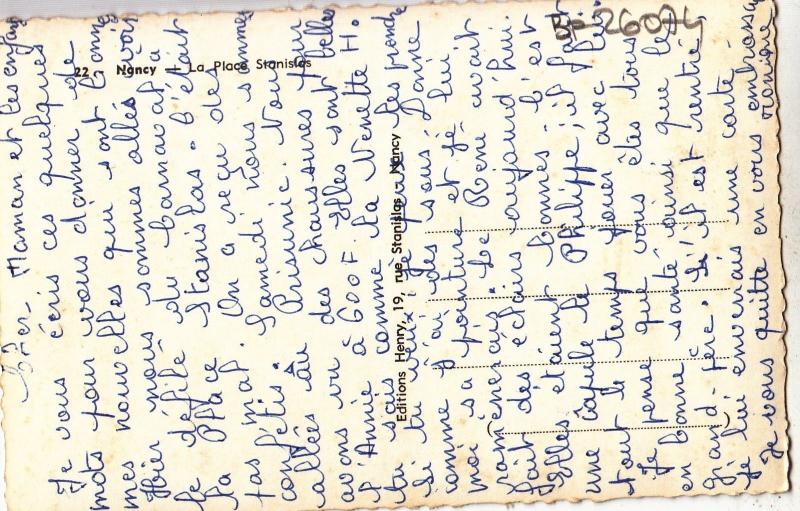 Cher Maman et les enfants
Je vous écris ces quelques
mots pour vous donner de
mes nouvelles qui sont bonnes
Hier nous sommes allés voir
le défilé du Carnaval à
la Place Stanislas. C'était
pas mal. On a reçu des
confétis. Samedi nous sommes
allées au Prisunic. Nous
avons vu des chaussures pour
l'Annie à 600F. Elles sont belles
tu sais comme la Nenette H.
si tu veux je peux les prendre
comme j'ai des sous, donne
moi sa pointure et je lui
ramènerais. Le René avait
fait des éclairs aujourd'hui.
Elles étaient bonnes. C'est
une capule le Philippe, il faut
tout le temps jouer avec lui.
Je pense que vous êtes tous
en bonne santé ainsi que le
grand-père. S'il est rentré
je lui enverrais une carte
Je vous quitte en vous embrassant
Monique
22 - Nancy - La Place Stanislas
Editions Henry, 19, rue Stanislas - Nancy
BP 26074